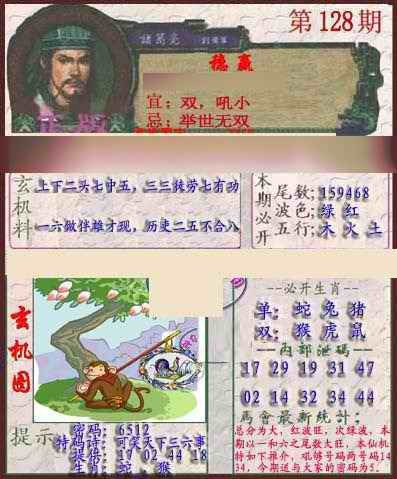 第128期
諸葛亮
稳赢
宜：双，吼小
忌：举世无双
玄机料
上下二头七中五，三三徒劳七有功
一六做伴雄才现，历史二五不合八
本期必开
尾数：159468
波色：绿 红
五行：木 火 土
玄机图
--必开生肖--
单：蛇 兔 猪
双：猴 虎 鼠
--内部泄码--
17 29 19 31 47
02 14 32 34 44
马會最新统计：
总分为大，红波旺，次绿波，本
期以一和六之尾数大旺，本仙机
特如下推介，吼够号码两号码14
34，今期道与大家的密码为5。
提示
密码：6512
特码诗：可笑天下三六事
提倍：17 02 44 18
生肖：蛇、猴